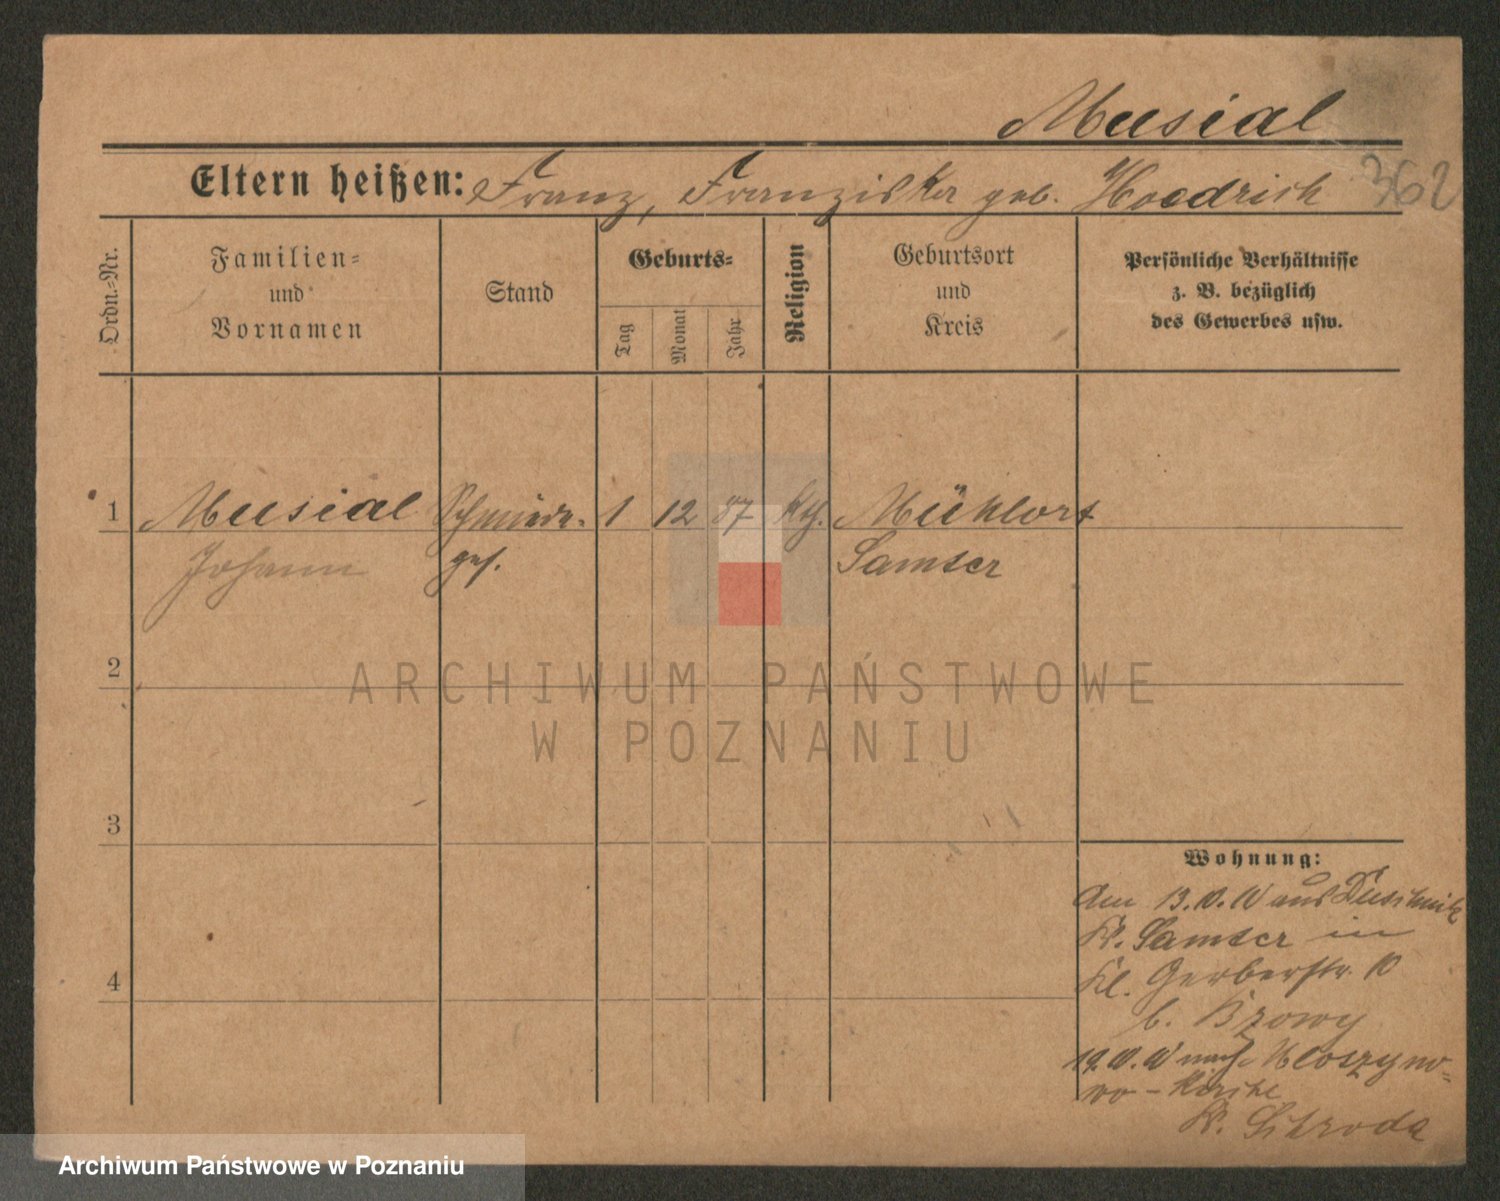 Musial
Eltern heißen: Franz, Franziska geb. Hoedrich
362
Ordn.-Nr.
Familien-
und
Vornamen
Stand
Geburts-
Tag
Monat
Jahr
Religion
Geburtsort
und
Kreis
Persönliche Verhältnisse
z. B. bezüglich
des Gewerbes usw.
1 Musial Schmiede- 1 12 87 kth. Mühlort
Johann ges. Samter
2
3
4
Wohnung:
Am 13. aus Duschnik
Kr. Samter in
Kl. Gerberstr. 10
b. Bzowy
19. nach
wo - Kirche
Kr. Schroda
ARCHIWUM PAŃSTWOWE
W POZNANIU
Archiwum Państwowe w Poznaniu